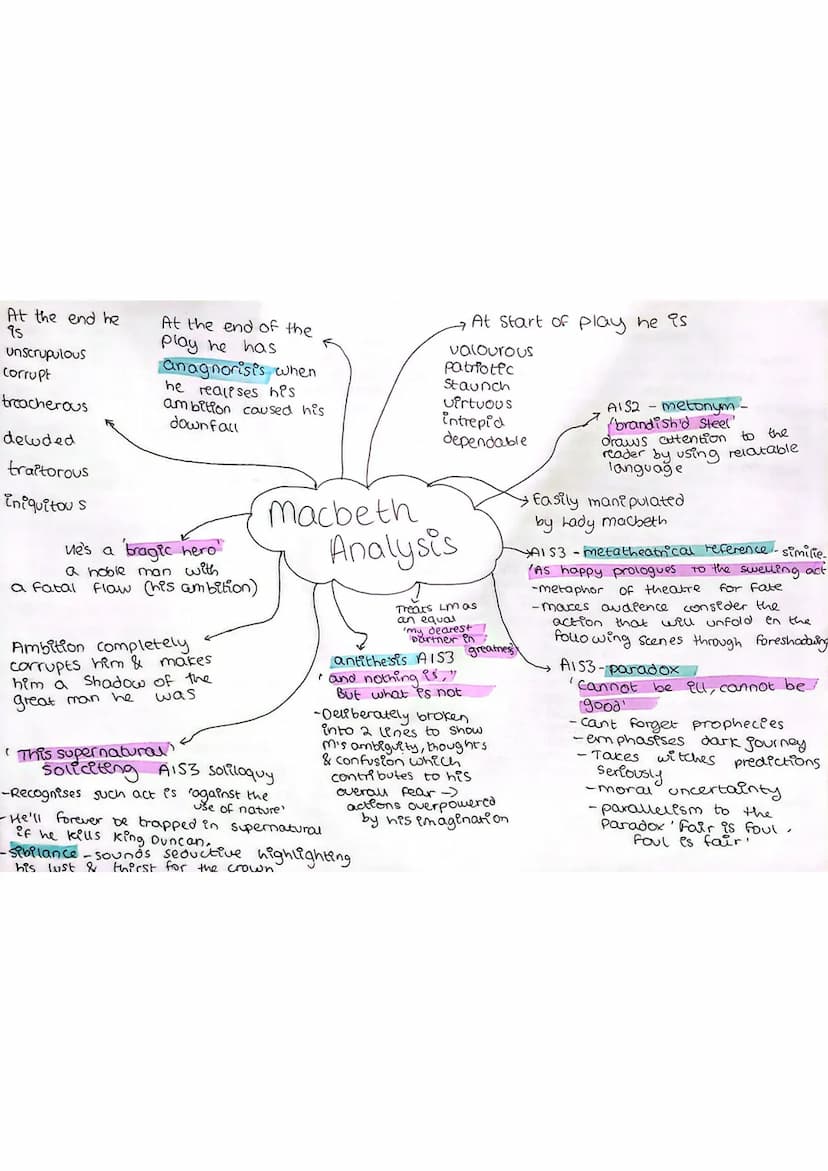 Macbeth
Analysis
At the end he
is
unscrupulous
corrupt
treacherous
deluded
traitorous
iniquitous
At the end of the
play he has
anagnorisis when
he realises his
ambition caused his
downfall
At start of play he is
valourous
patriotic
staunch
virtuous
intrepid
dependable
A1S2 - metonym -
'brandish'd steel'
draws attention to the
reader by using relatable
language
Easily manipulated
by Lady macbeth
A1S3 - metatheatrical reference - similie
'As happy prologues to the swelling act
- metaphor of theatre for fate
- makes audience consider the
action that will unfold in the
following scenes through foreshadowing
A1S3 - paradox
'Cannot be ill, cannot be
good'
- cant forget prophecies
- emphasises dark journey
- Takes witches predictions
seriously
- moral uncertainty
- parallelism to the
paradox 'fair is foul,
foul is fair'
Treats LM as
an equal
'my dearest
partner in
greatness'
antithesis A1S3
'and nothing is,"
But what is not
- Deliberately broken
into 2 lines to show
M's ambiguity, thoughts
& confusion which
contributes to his
overall fear →
actions overpowered
by his imagination
He's a 'tragic hero'
a noble man with
a fatal flaw (his ambition)
Ambition completely
corrupts him & makes
him a shadow of the
great man he was
'This supernatural
soliciting' A1S3 soliloquy
- Recognises such act is 'against the
use of nature'
- He'll forever be trapped in supernatural
if he kills King Duncan.
- Sibilance - sounds seductive highlighting
his lust & thirst for the crown